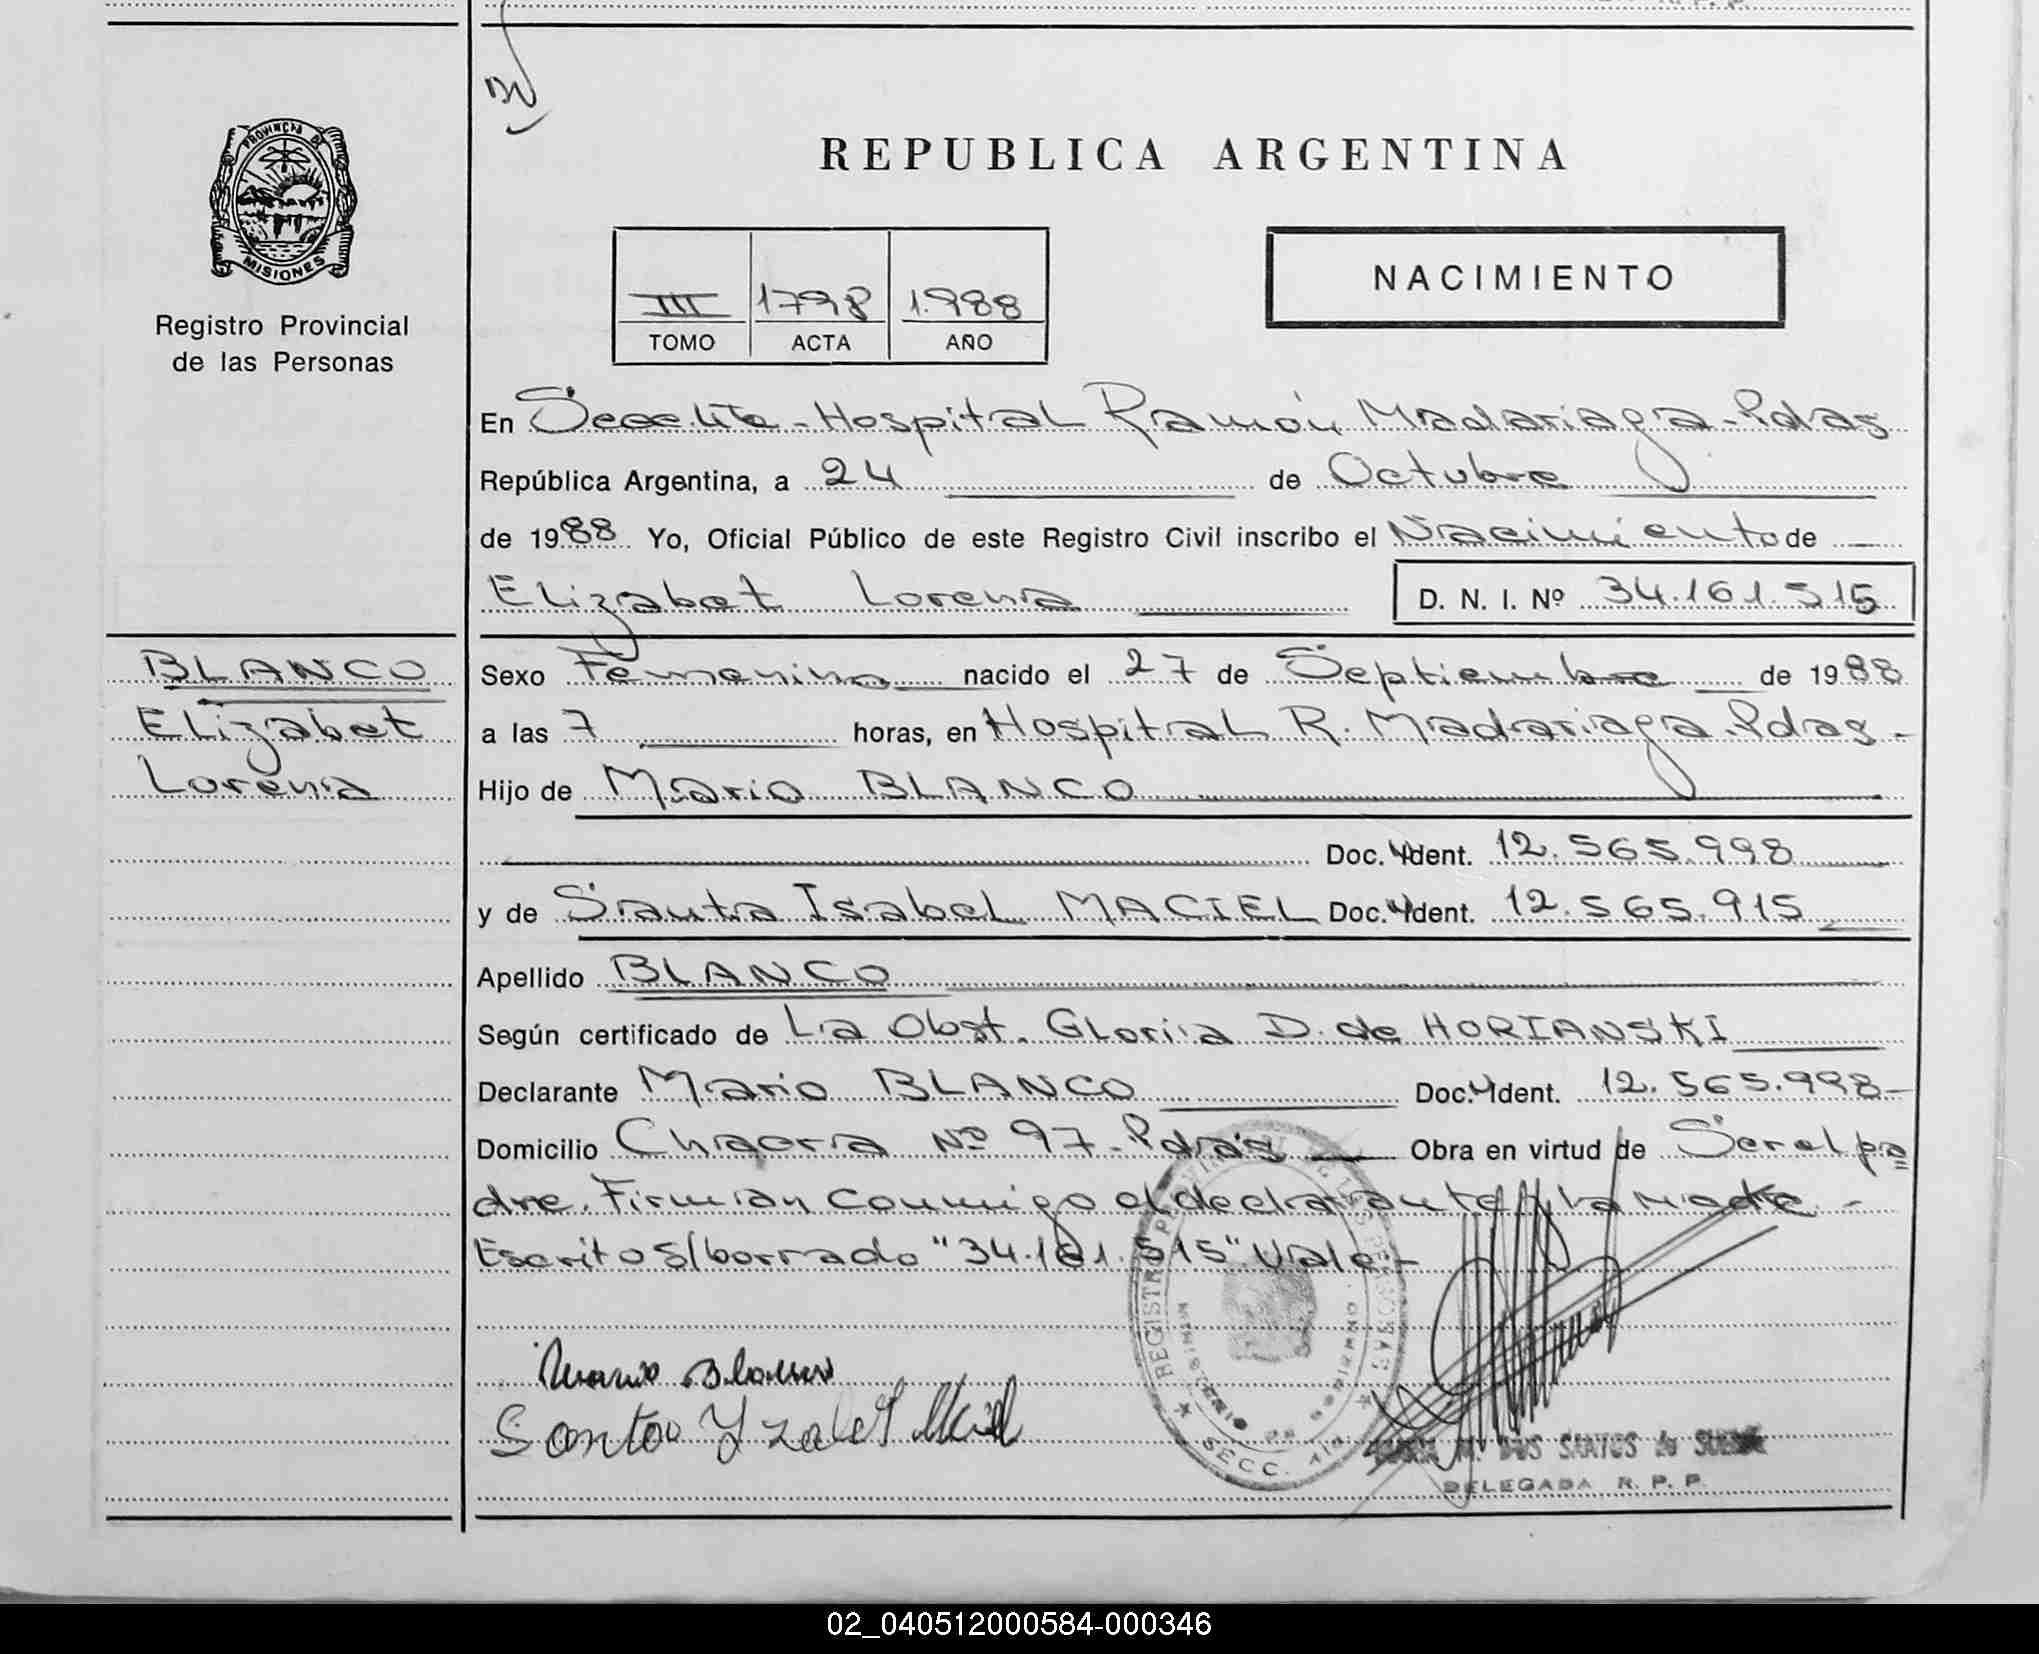 PROVINCIA DE
MISIONES
Registro Provincial
de las Personas
REPUBLICA ARGENTINA
III 1798 1.988
TOMO ACTA AÑO
NACIMIENTO
En Hospital Ramón Madariaga - Pdas
República Argentina, a 24 de Octubre
de 1988 Yo, Oficial Público de este Registro Civil inscribo el Nacimiento de
Elizabet Lorena D. N. I. Nº 34.161.515
BLANCO
Elizabet
Lorena
Sexo Femenino nacido el 27 de Septiembre de 1988
a las 7 horas, en Hospital R. Madariaga. Pdas -
Hijo de Mario BLANCO
Doc. Ident. 12.565.998
y de Santa Isabel MACIEL Doc. Ident. 12.565.915
Apellido BLANCO
Según certificado de La Obst. Gloria D. de HORIANSKI
Declarante Mario BLANCO Doc. Ident. 12.565.998 -
Domicilio Chacra Nº 97 - Pdas Obra en virtud de Ser el pa
dre. Firman conmigo el declarante y la Madre -
Escrito s/borrado "34.161.515" Vale -
Mario Blanco
Santa Yzabel
REGISTRO PERSONAS
SECC.
M. DOS SANTOS de
DELEGADA R. P. P.
02_040512000584-000346